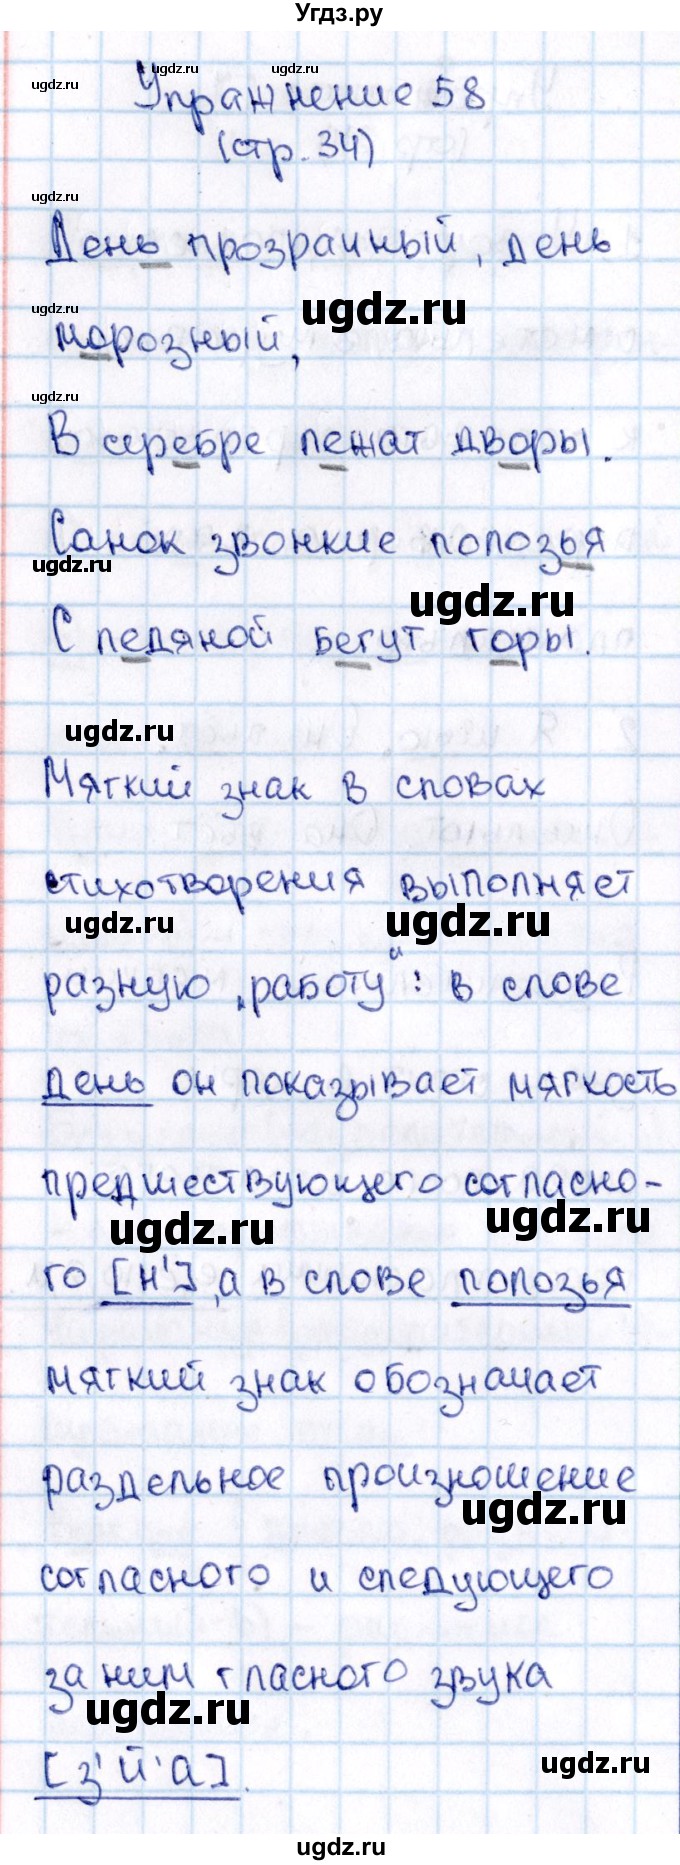 Угдз.ру
ugdz.ru ugdz.ru ugdz.ru
Упражнение 58
(стр. 34)
ugdz.ru
День прозрачный, день
ugdz.ru ugdz.ru
морозный,
ugdz.ru
В серебре лежат дворы.
Санок звонкие полозья
ugdz.ru ugdz.ru
С ледяной бегут горы.
ugdz.ru
Мягкий знак в словах
стихотворения выполняет
ugdz.ru ugdz.ru
разную „работу“: в слове
день он показывает мягкость
предшествующего согласно-
ugdz.ru ugdz.ru
го [н'], а в слове полозья
мягкий знак обозначает
раздельное произношение
ugdz.ru
согласного и следующего
за ним гласного звука
ugdz.ru
[з'й'а].
ugdz.ru
ugdz.ru